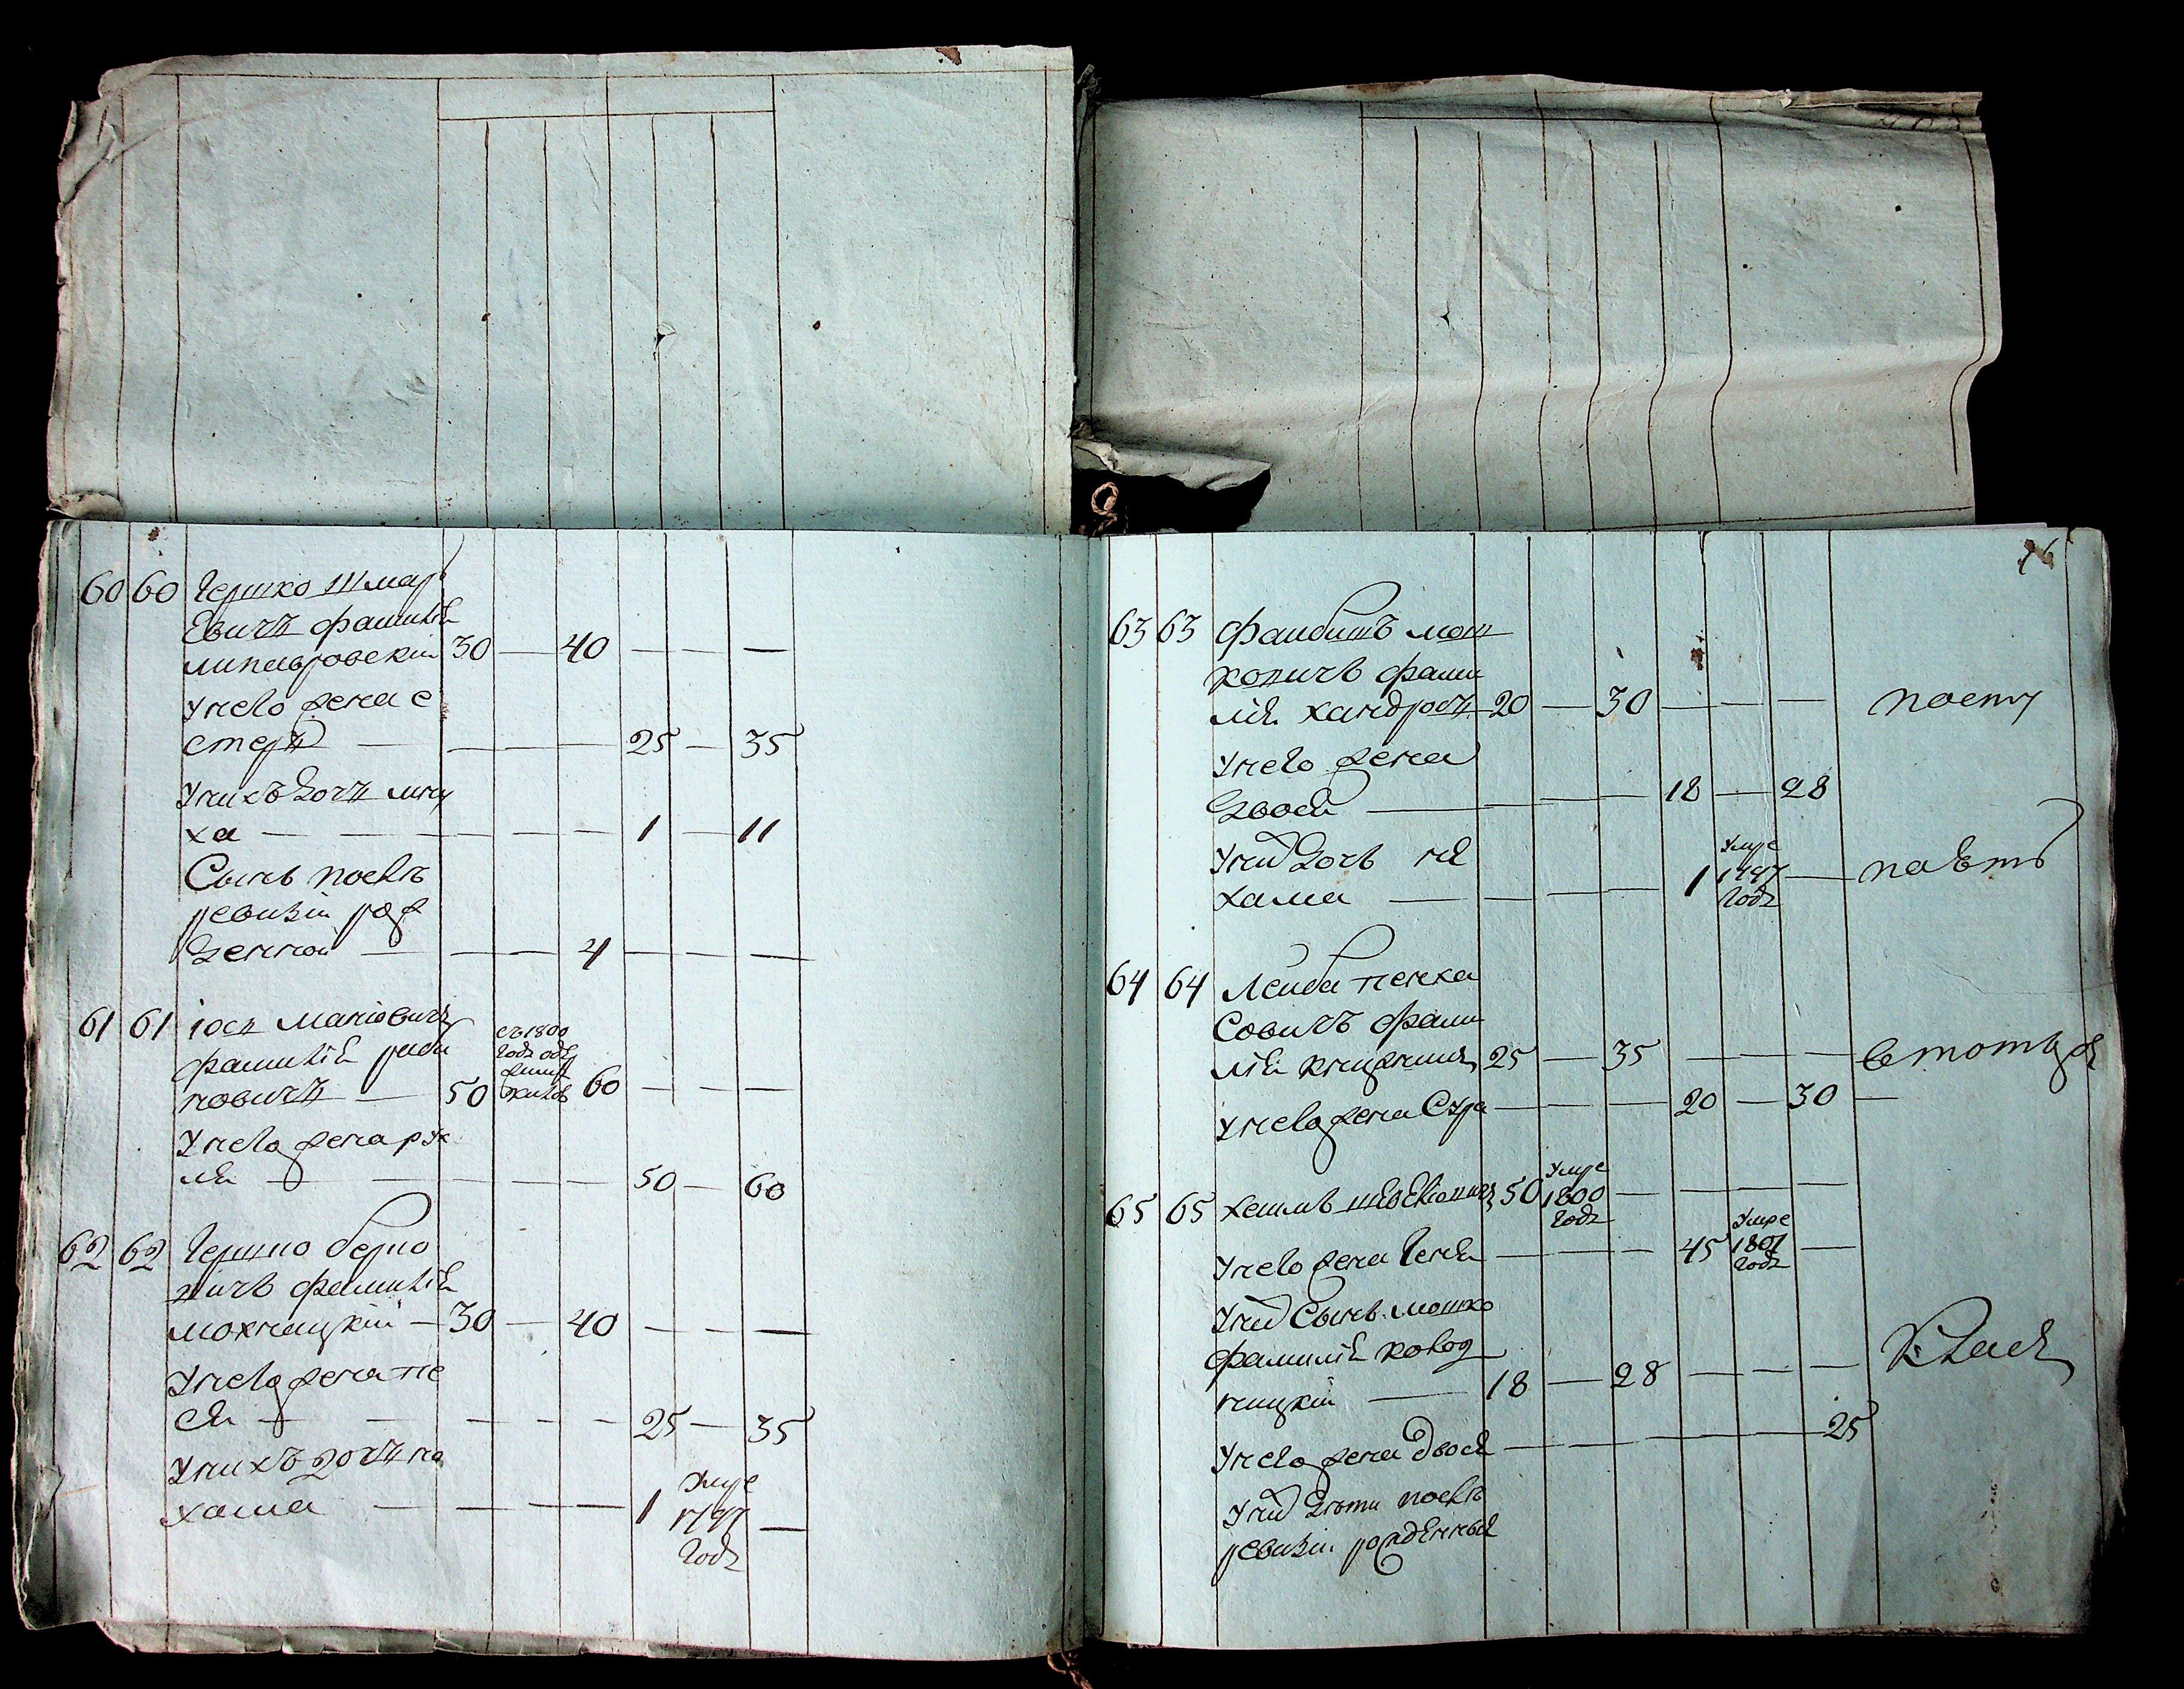 60 60 Гершко Шмар
евичъ фамилiи
липавровскiй 30 — 40 — — —
У него жена е
стеръ — — — — 25 — 35
У нихъ дочъ мну
ха — — — — — 1 — 11
Сынъ послѣ
ревизiи рож
денной — — — 4 — — —
61 61 iосъ
фамилiи раби
новичъ — 50 60 — — —
съ 1800
годъ
У него жена рух
ля — — — — 50 — 60
62 62 Гершко берко
вичъ фамилiи
мохнацкiй — 30 — 40 — — —
У него жена пе
ся — — — — — 25 — 35
У нихъ дочъ не
хама — — — — 1 —
умре
1797
годъ
76
63 63 Фаибишъ мош
ковичъ фами
лiи хандросъ 20 — 30 — — —
У него жена
Двося — — — — 18 — 28
У ний дочь не
хама — — — — 1 —
умре
1797
годъ
64 64 Леиба пенха
совичъ фами
лiи 25 — 35 — — —
У него жена Сура — — — 20 — 30 —
65 65 хаимъ 50 — — — —
умре
1800
годъ
У него жена Геня — — — 45 —
умре
1801
годъ
У ний Сынъ мошко
фамилiи колод
ницкiй — 18 — 28 — — —
У него жена двося — — — — — 25
У ний дѣти послѣ
ревизiи рожденныя